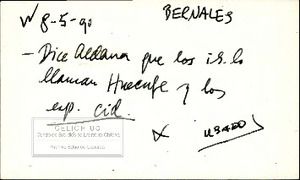 W 8-5-90 BERNALES
- Dice Aldana que los is. lo
llaman Huecufe y los
esp. cid.
X USADO
CELICH UC